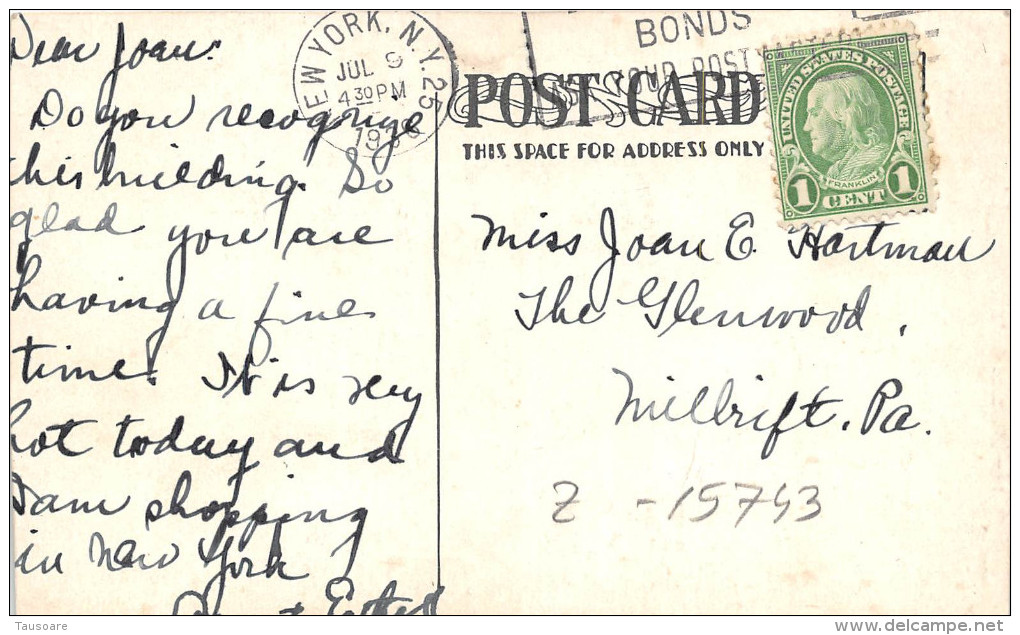 Dear Joan:
Do you recognize
this building. So
glad you are
having a fine
time. It is very
hot today and
I am shopping
in New York
Aunt Ethel
NEW YORK, N.Y. 25
JUL 9
4 30 PM
193
BONDS
YOUR POSTMASTER
POST CARD
THIS SPACE FOR ADDRESS ONLY
UNITED STATES POSTAGE
FRANKLIN
1 CENT 1
Miss Joan E. Hartman
The Glenwood,
Millrift, Pa.
Z - 15743
Tausoare
delcampe.net